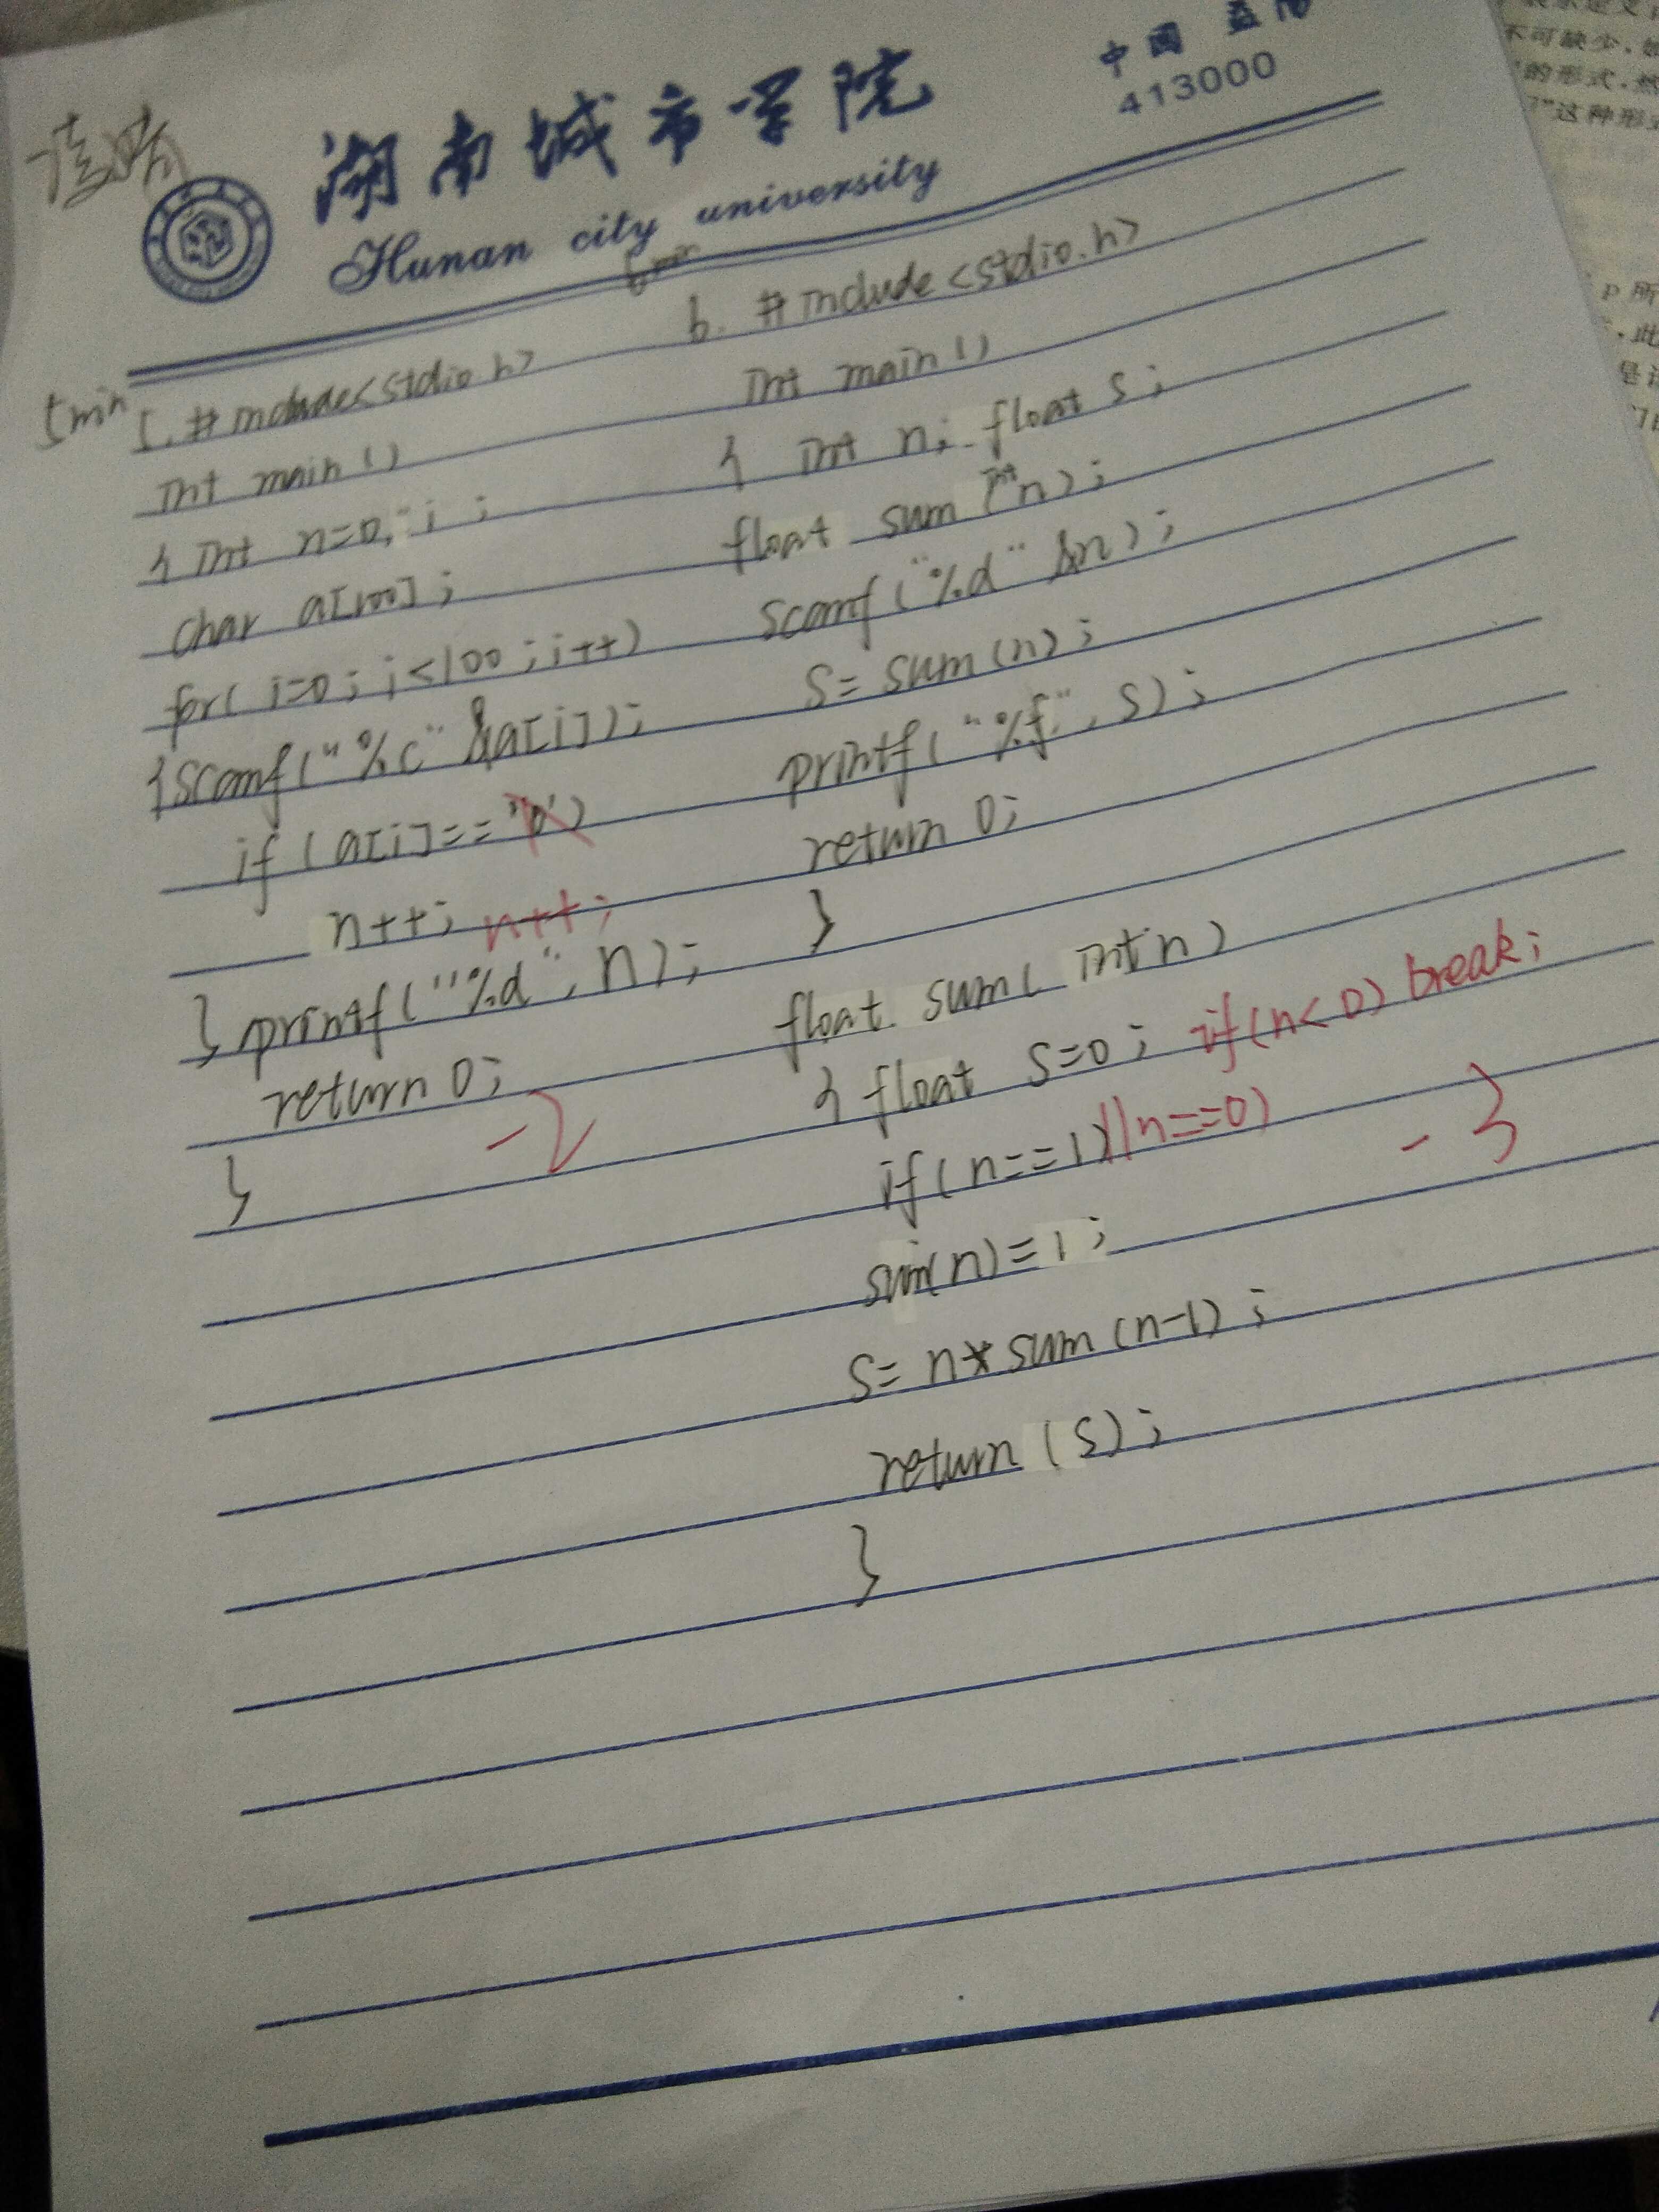 湖南城市学院
中国 益阳
413000
Hunan city university
5min
#include<stdio.h>
int main()
{ int n=0, i;
char a[100];
for( i=0; i<100; i++)
{scanf("%c" &a[i]);
if (a[i]==
n++; n++;
} printf("%d", n);
return 0;
}
-2
6min
6. #include<stdio.h>
int main()
{ int n; float s;
float sum (int n);
scanf("%d" &n);
s= sum(n);
printf("%f", s);
return 0;
}
float sum( int n)
{ float s=0; if(n<0) break;
if(n==1)||n==0)
sum(n)=1;
s= n*sum(n-1);
return (s);
}
-3
不可缺少.
的形式.然
"这种形式
p 所
.此